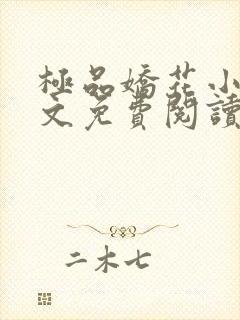 極品嬌花小
文免費閱讀
二木七